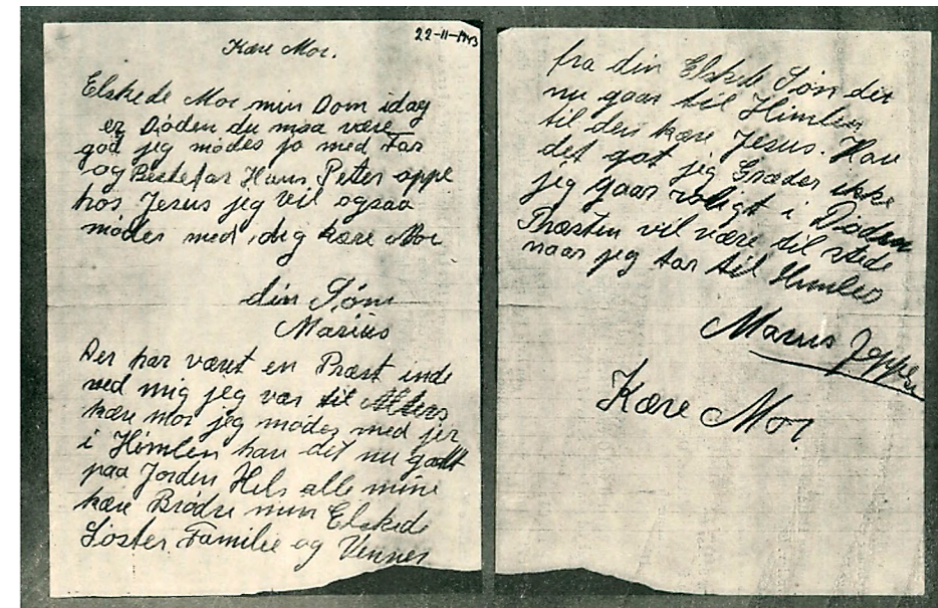 22-11-1943
Kære Mor.
Elskede Mor min Dom idag
er Døden du maa være
god jeg mødes jo med Far
og Bestefar Hans Peter oppe
hos Jesus jeg vil ogsaa
mødes med dig kære Mor
din Søn
Marius
Der har været en Præst inde
ved mig jeg var til Alters
kære mor jeg mødes med jer
i Himlen hav det nu godt
paa Jorden Hels alle mine
kære Brødre min Elskede
Søster Familie og Venner
fra din Elskede Søn der
nu gaar til Himlen
til den kære Jesus. Hav
det got jeg Græder ikke
jeg gaar roligt i Døden
Præsten vil være til stede
naar jeg tar til Himlen
Marius Jeppesen
Kære Mor